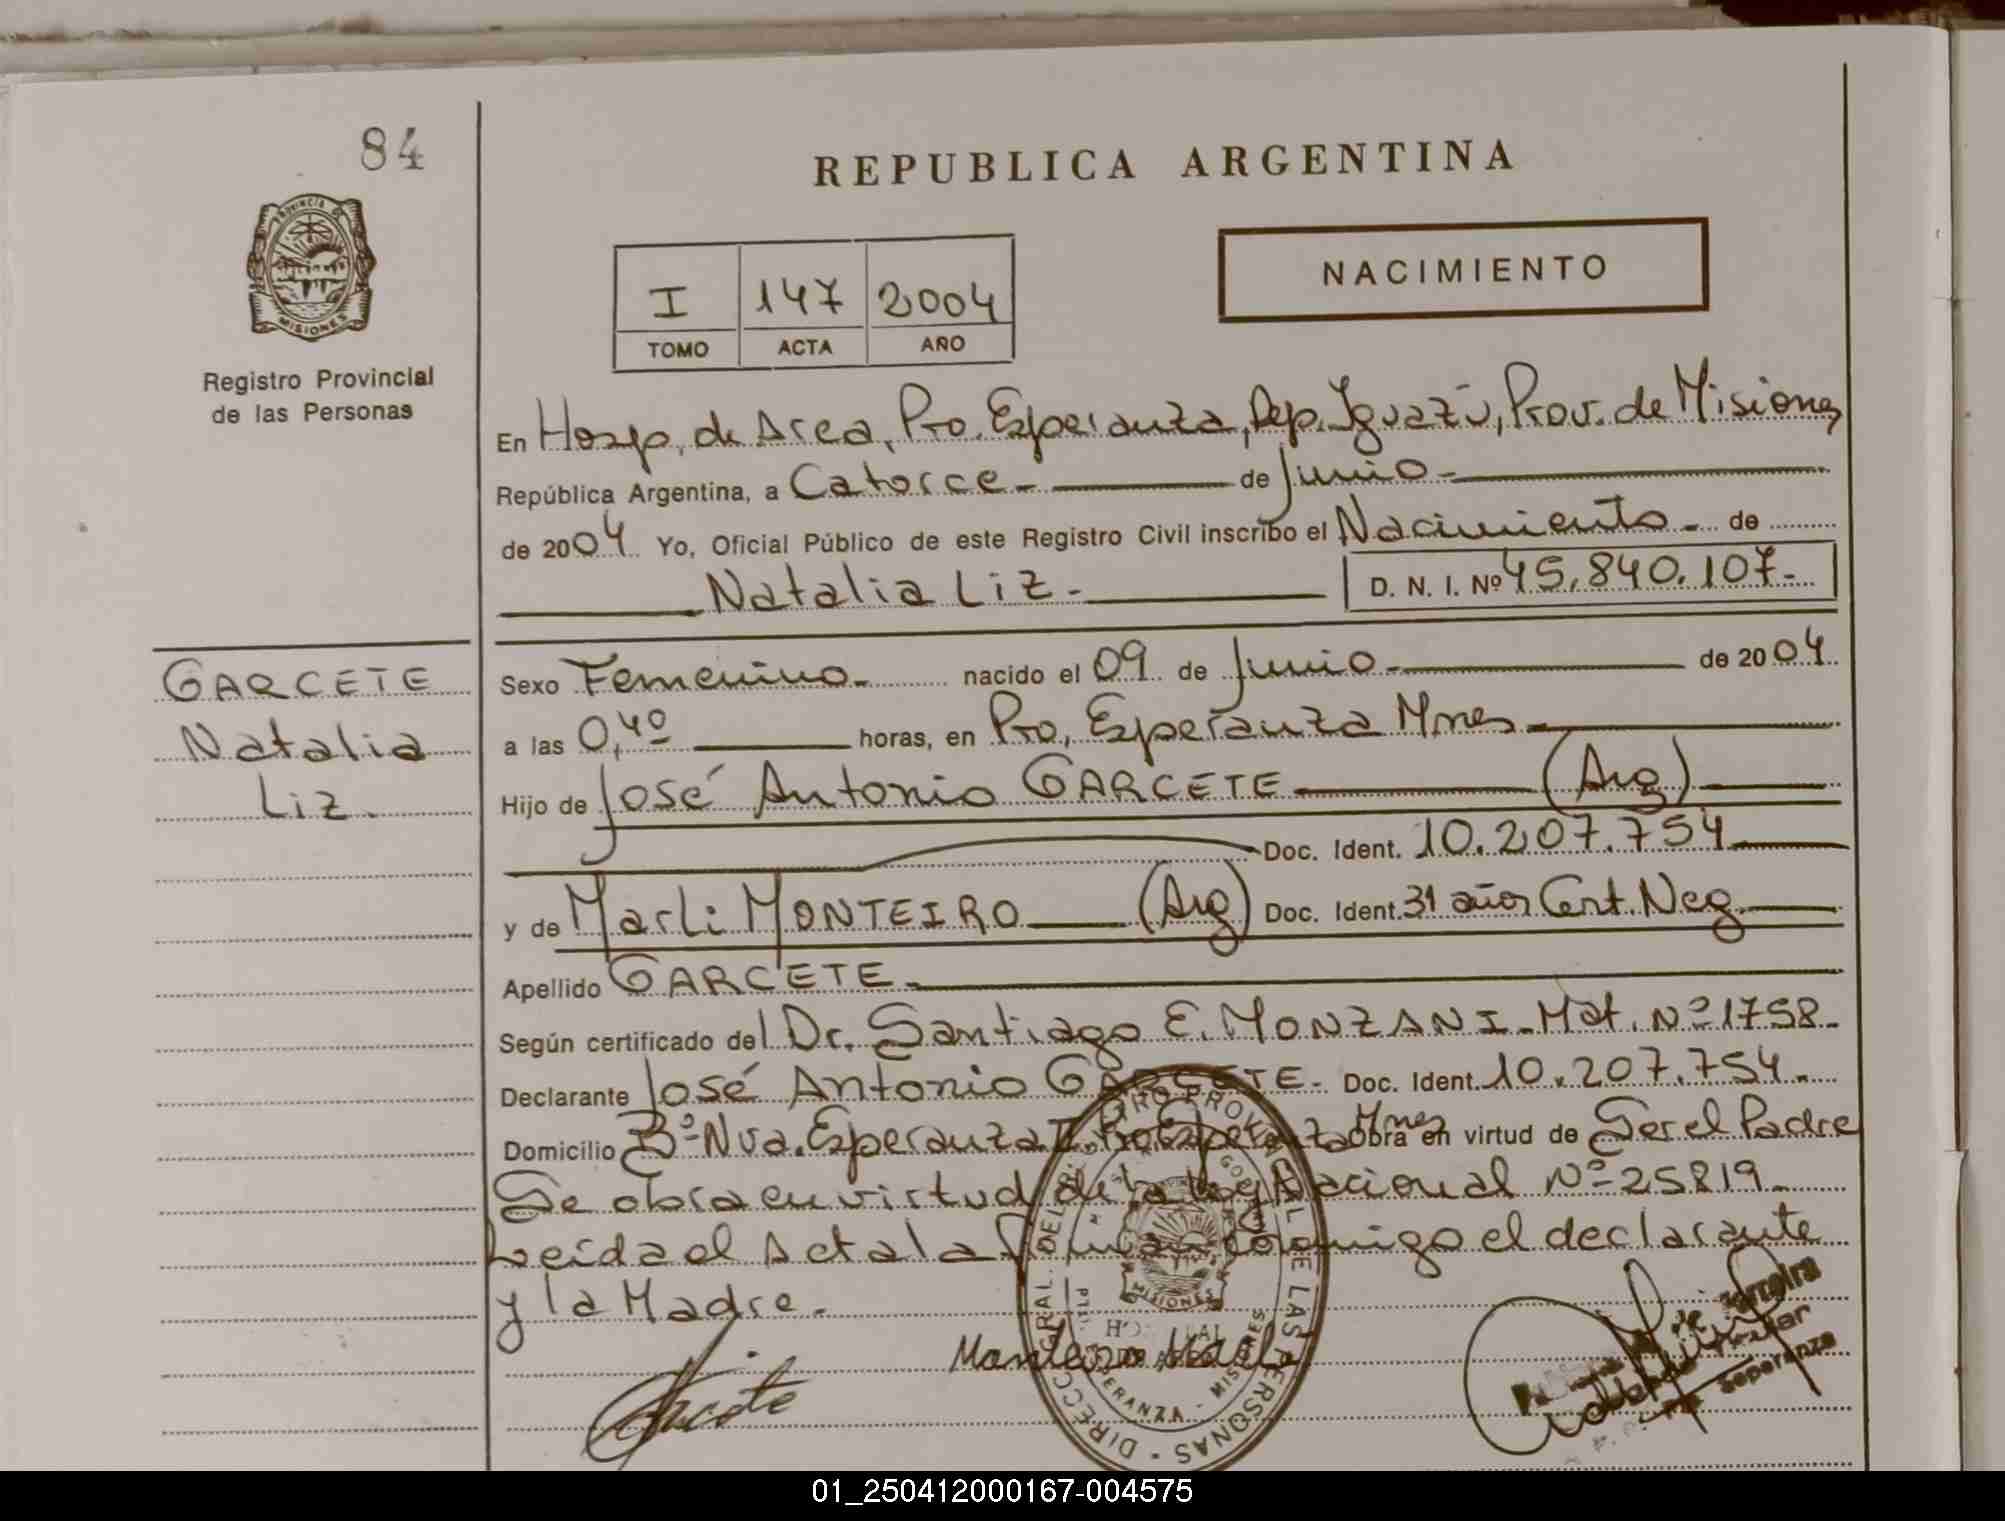 84
REPUBLICA ARGENTINA
PROVINCIA DE
MISIONES
Registro Provincial
de las Personas
I 147 2004
TOMO ACTA AÑO
NACIMIENTO
En Hosp. de Area, Pto. Esperanza, Dep. Iguazú, Prov. de Misiones
República Argentina, a Catorce.- de Junio.-
de 2004 Yo, Oficial Público de este Registro Civil inscribo el Nacimiento.- de
Natalia Liz.- D. N. I. Nº 45.840.107.-
GARCETE
Natalia
Liz.
Sexo Femenino.- nacido el 09 de Junio.- de 2004
a las 0,40 horas, en Pto. Esperanza Mnes.-
Hijo de José Antonio GARCETE (Arg)
Doc. Ident. 10.207.754
y de Marli MONTEIRO (Arg) Doc. Ident. 31 años Cert. Neg.
Apellido GARCETE.-
Según certificado del Dr. Santiago E. MONZANI.- Mat. Nº 1758.-
Declarante José Antonio GARCETE.- Doc. Ident. 10.207.754.-
Domicilio Bº Nva. Esperanza II Pto. Esperanza Mnes Obra en virtud de Ser el Padre
Se obra en virtud de la Ley Nacional Nº 25819.-
Leida el Acta la firman conmigo el declarante
y la Madre.-
Monteiro Marli
DIRECC. GRAL. DEL REGISTRO PROVINCIAL DE LAS PERSONAS
MISIONES
HOSPITAL
ESPERANZA - MISIONES
de Ferreira
Esperanza
01_250412000167-004575